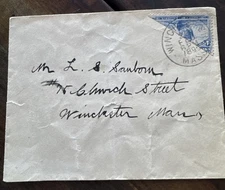 WINC
MASS
Mr L. S. Sanborn
Church Street
Winchester Mass